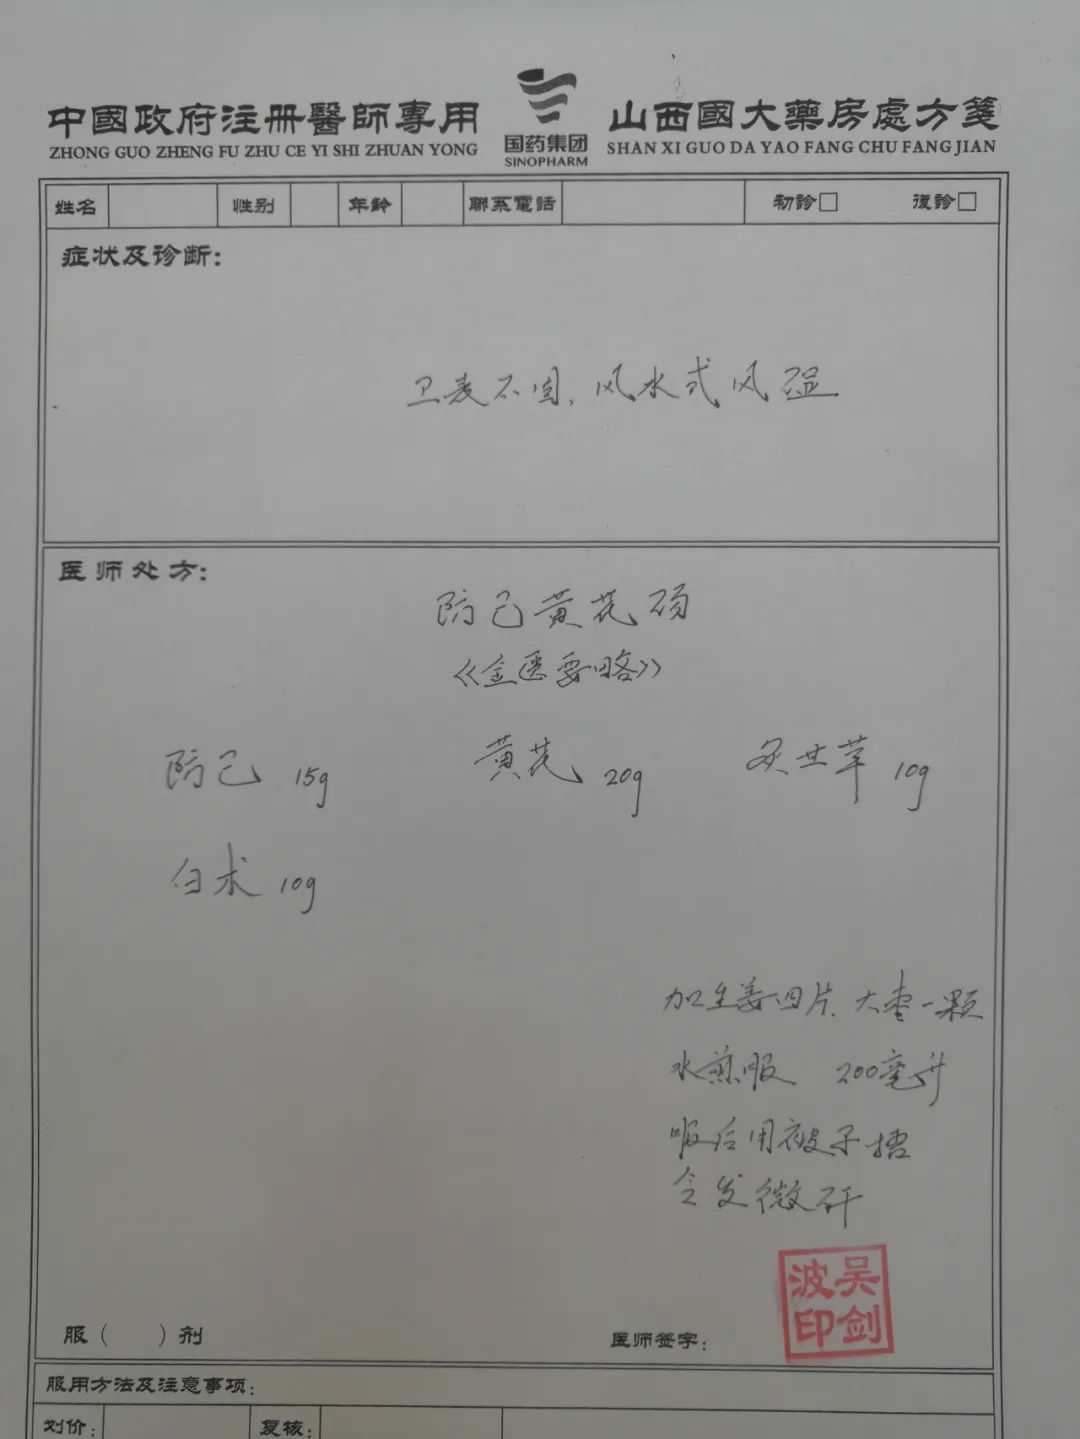 中國政府注册醫師專用
ZHONG GUO ZHENG FU ZHU CE YI SHI ZHUAN YONG
国药集团
SINOPHARM
山西國大藥房處方箋
SHAN XI GUO DA YAO FANG CHU FANG JIAN
姓名 性别 年齡 聯系電話 初診□ 復診□
症状及诊断:
卫表不固,风水或风湿
医师处方:
防己黄芪汤
《金匮要略》
防己 15g 黄芪 20g 炙甘草 10g
白术 10g
加生姜四片、大枣一颗
水煎服 200毫升
服后用被子捂
令发微汗
吴剑波印
服( )剂 医师签字:
服用方法及注意事项:
划价: 复核: